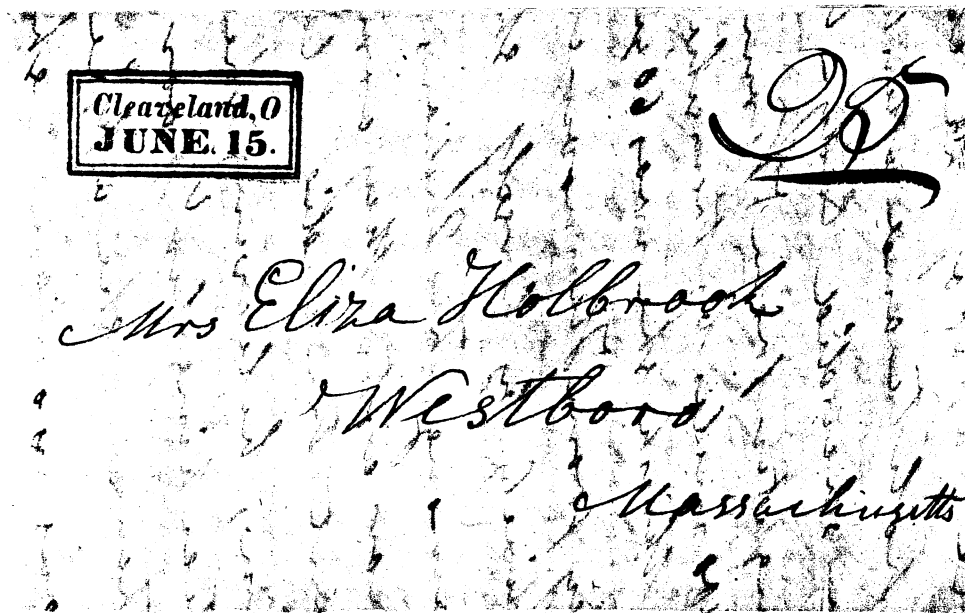 Cleaveland, O
JUNE. 15.
25
Mrs Eliza Holbrook
Westboro,
Massachusetts